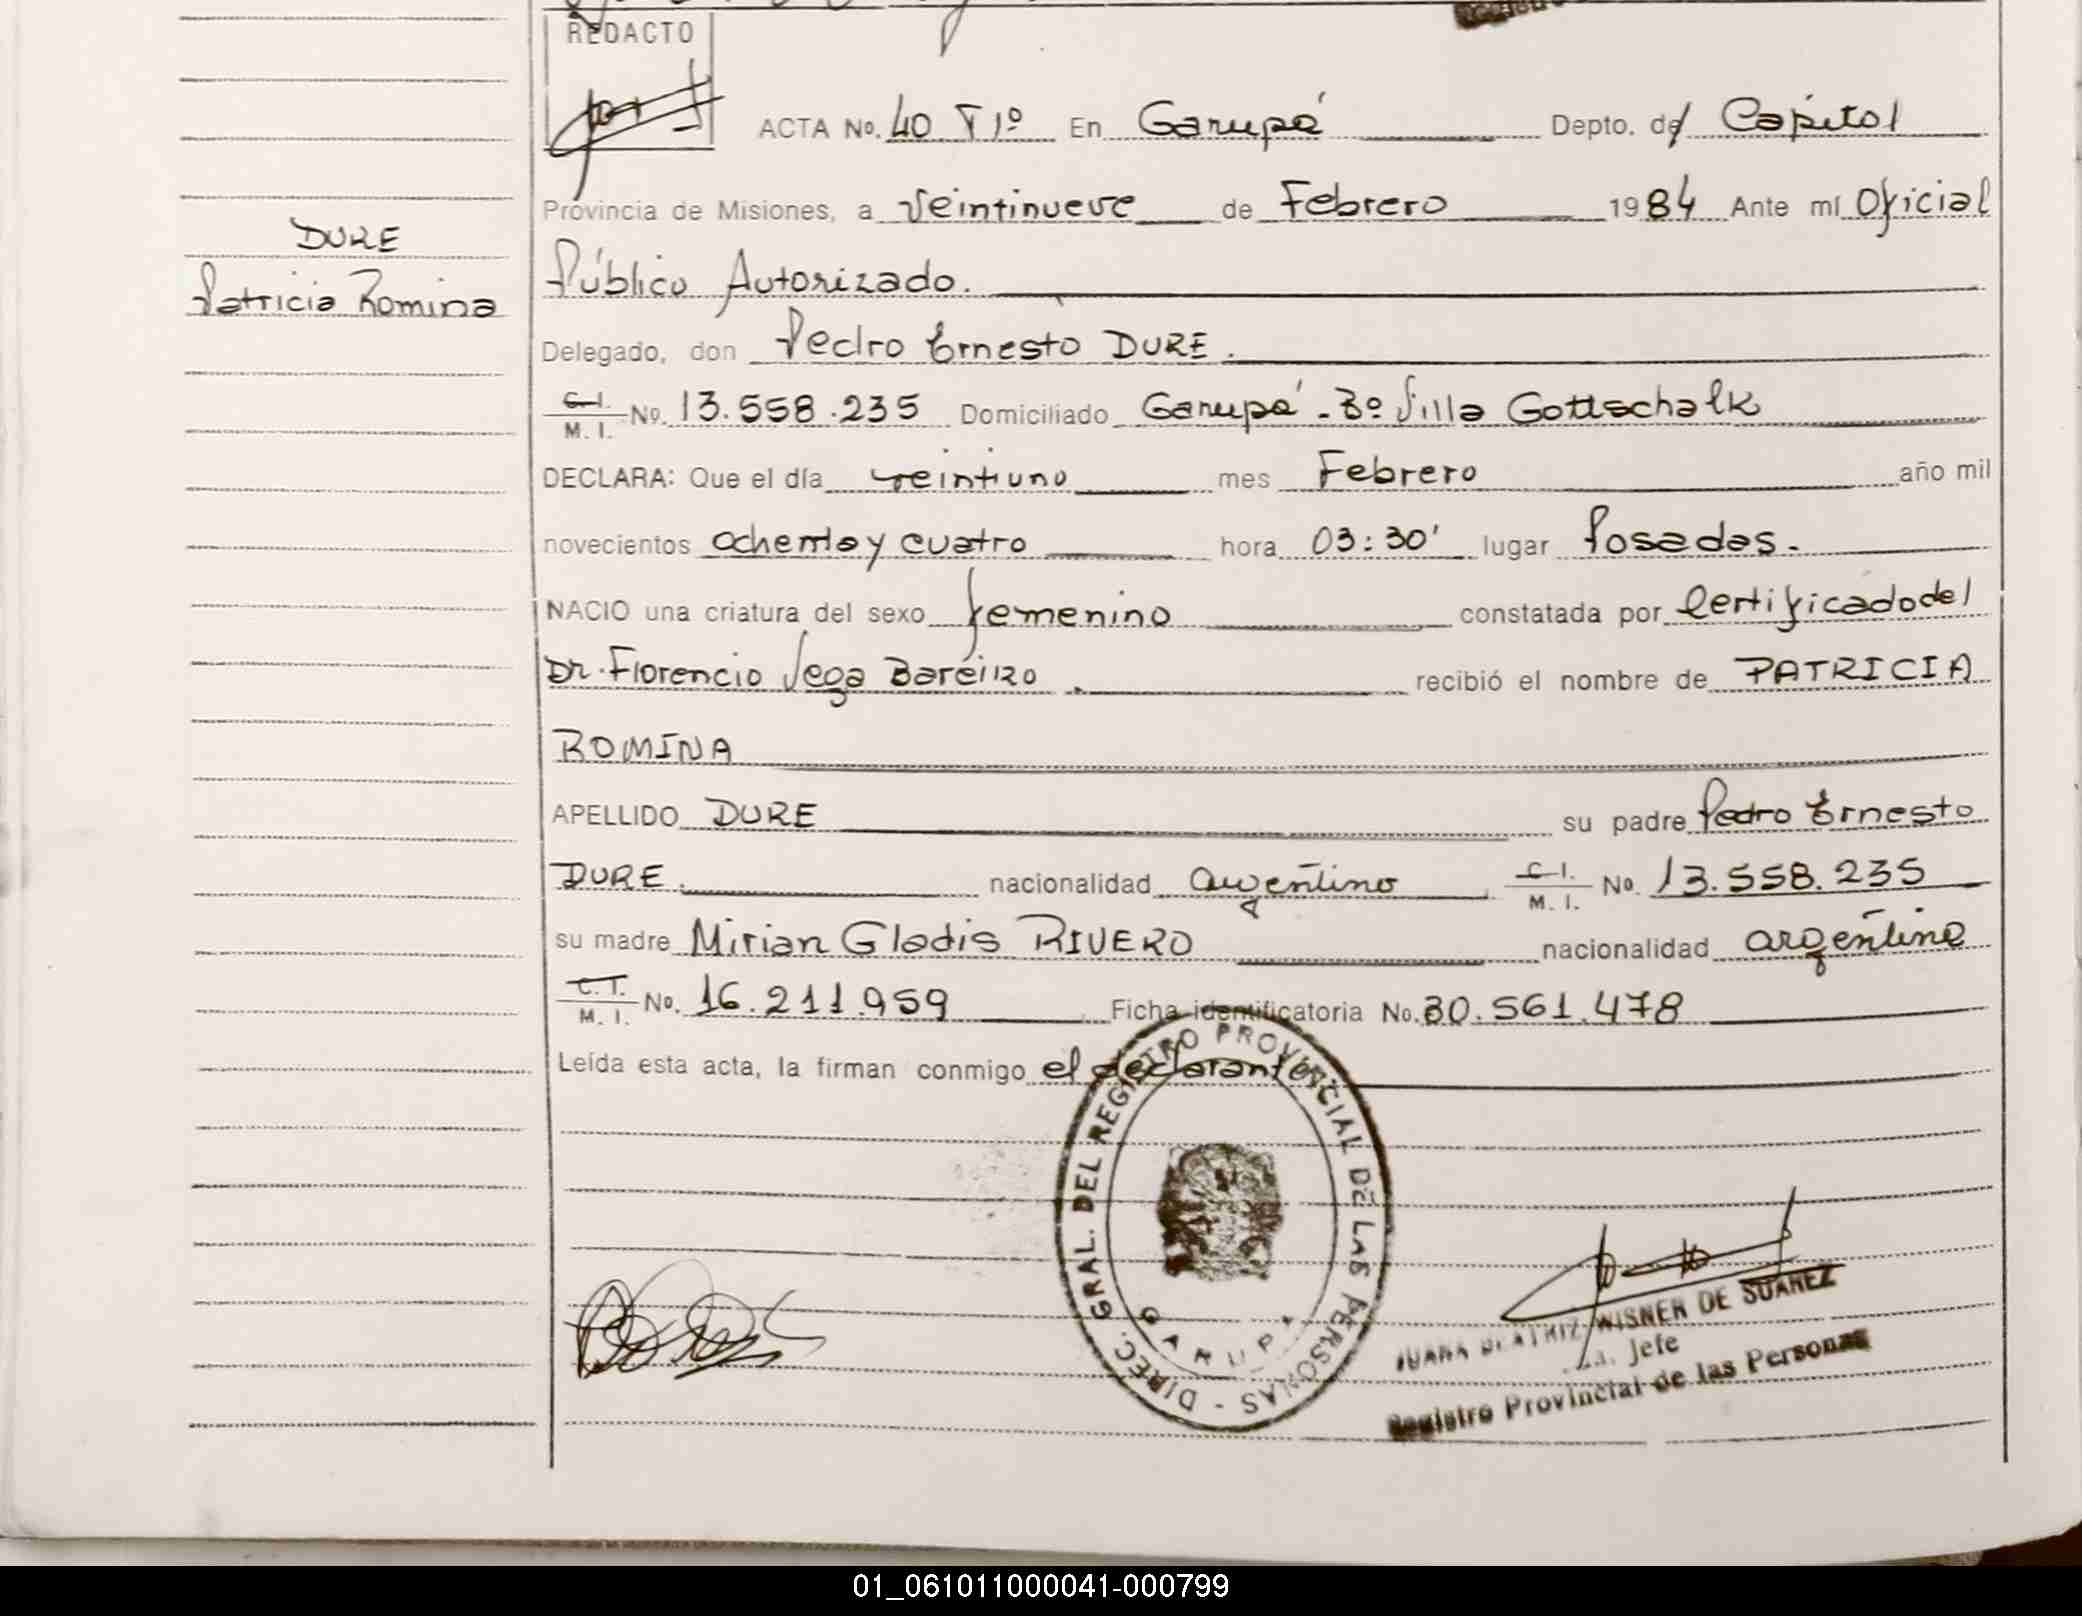 REDACTO
ACTA No. 40 T 1º En Garupá Depto. de Capital
Provincia de Misiones, a veintinueve de Febrero 1984 Ante mí Oficial
DURE
Patricia Romina
Público Autorizado.
Delegado, don Pedro Ernesto DURE.
C.I. M.I. No. 13.558.235 Domiciliado Garupá - Bº Villa Gottschalk
DECLARA: Que el día veintiuno mes Febrero año mil
novecientos ochenta y cuatro hora 03:30' lugar Posadas.
NACIO una criatura del sexo femenino constatada por Certificado del
Dr. Florencio Vega Bareiro recibió el nombre de PATRICIA
ROMINA
APELLIDO DURE su padre Pedro Ernesto
DURE. nacionalidad argentino C.I. M.I. No. 13.558.235
su madre Mirian Gladis RIVERO nacionalidad argentina
C.I. M.I. No. 16.211.959 Ficha identificatoria No. 30.561.478
Leída esta acta, la firman conmigo el declarante
DIREC. GRAL. DEL REGISTRO PROVINCIAL DE LAS PERSONAS -
GARUPA
JUANA BEATRIZ WISNER DE SUAREZ
Jefe
Registro Provincial de las Personas
01_061011000041-000799